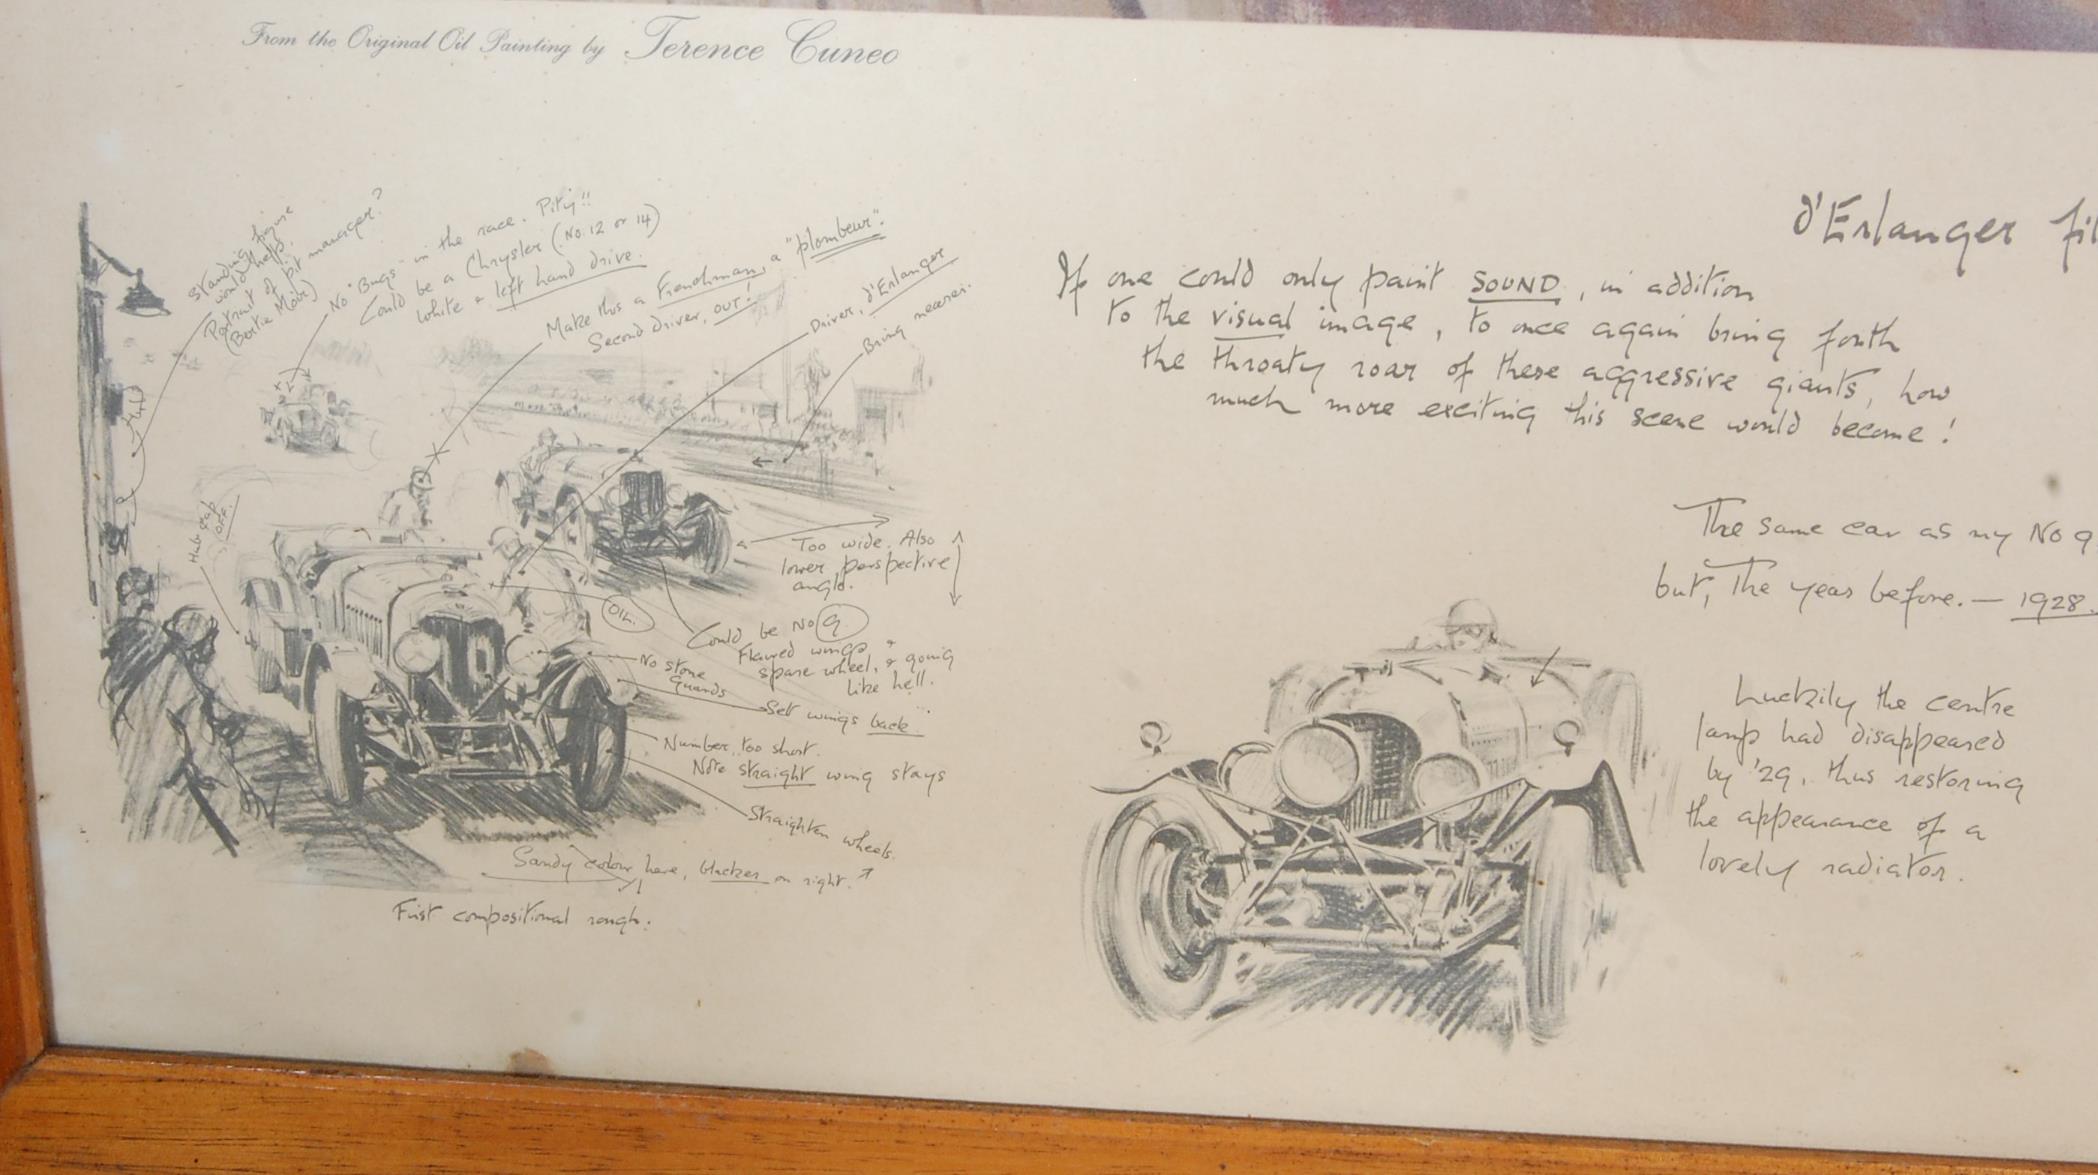 From the Original Oil Painting by Terence Cuneo
standing figure
would help.
Portrait of pit manager?
(Bertie
No "Bugs" in the race. Pity!!
Could be a Chrysler (No. 12 or 14)
White & left hand drive.
Make this a Frenchman, a "plombeur".
Second driver, OUT!
Driver, d'Erlanger
Bring nearer.
Hub cap
OFF.
Too wide. Also
lower perspective
angle.
OIL.
Could be No 9
Flared wings &
spare wheel, & going
like hell.
No stone
guards
Set wings back
Number, too short.
Note straight wing stays
Straighten wheels.
Sandy colour here, blacker on right.
First compositional rough.
d'Erlanger
If one could only paint SOUND, in addition
to the visual image, to once again bring forth
the throaty roar of these aggressive giants, how
much more exciting this scene would become!
The same car as my No 9
but, The year before. — 1928.
Luckily the centre
lamp had disappeared
by '29, thus restoring
the appearance of a
lovely radiator.